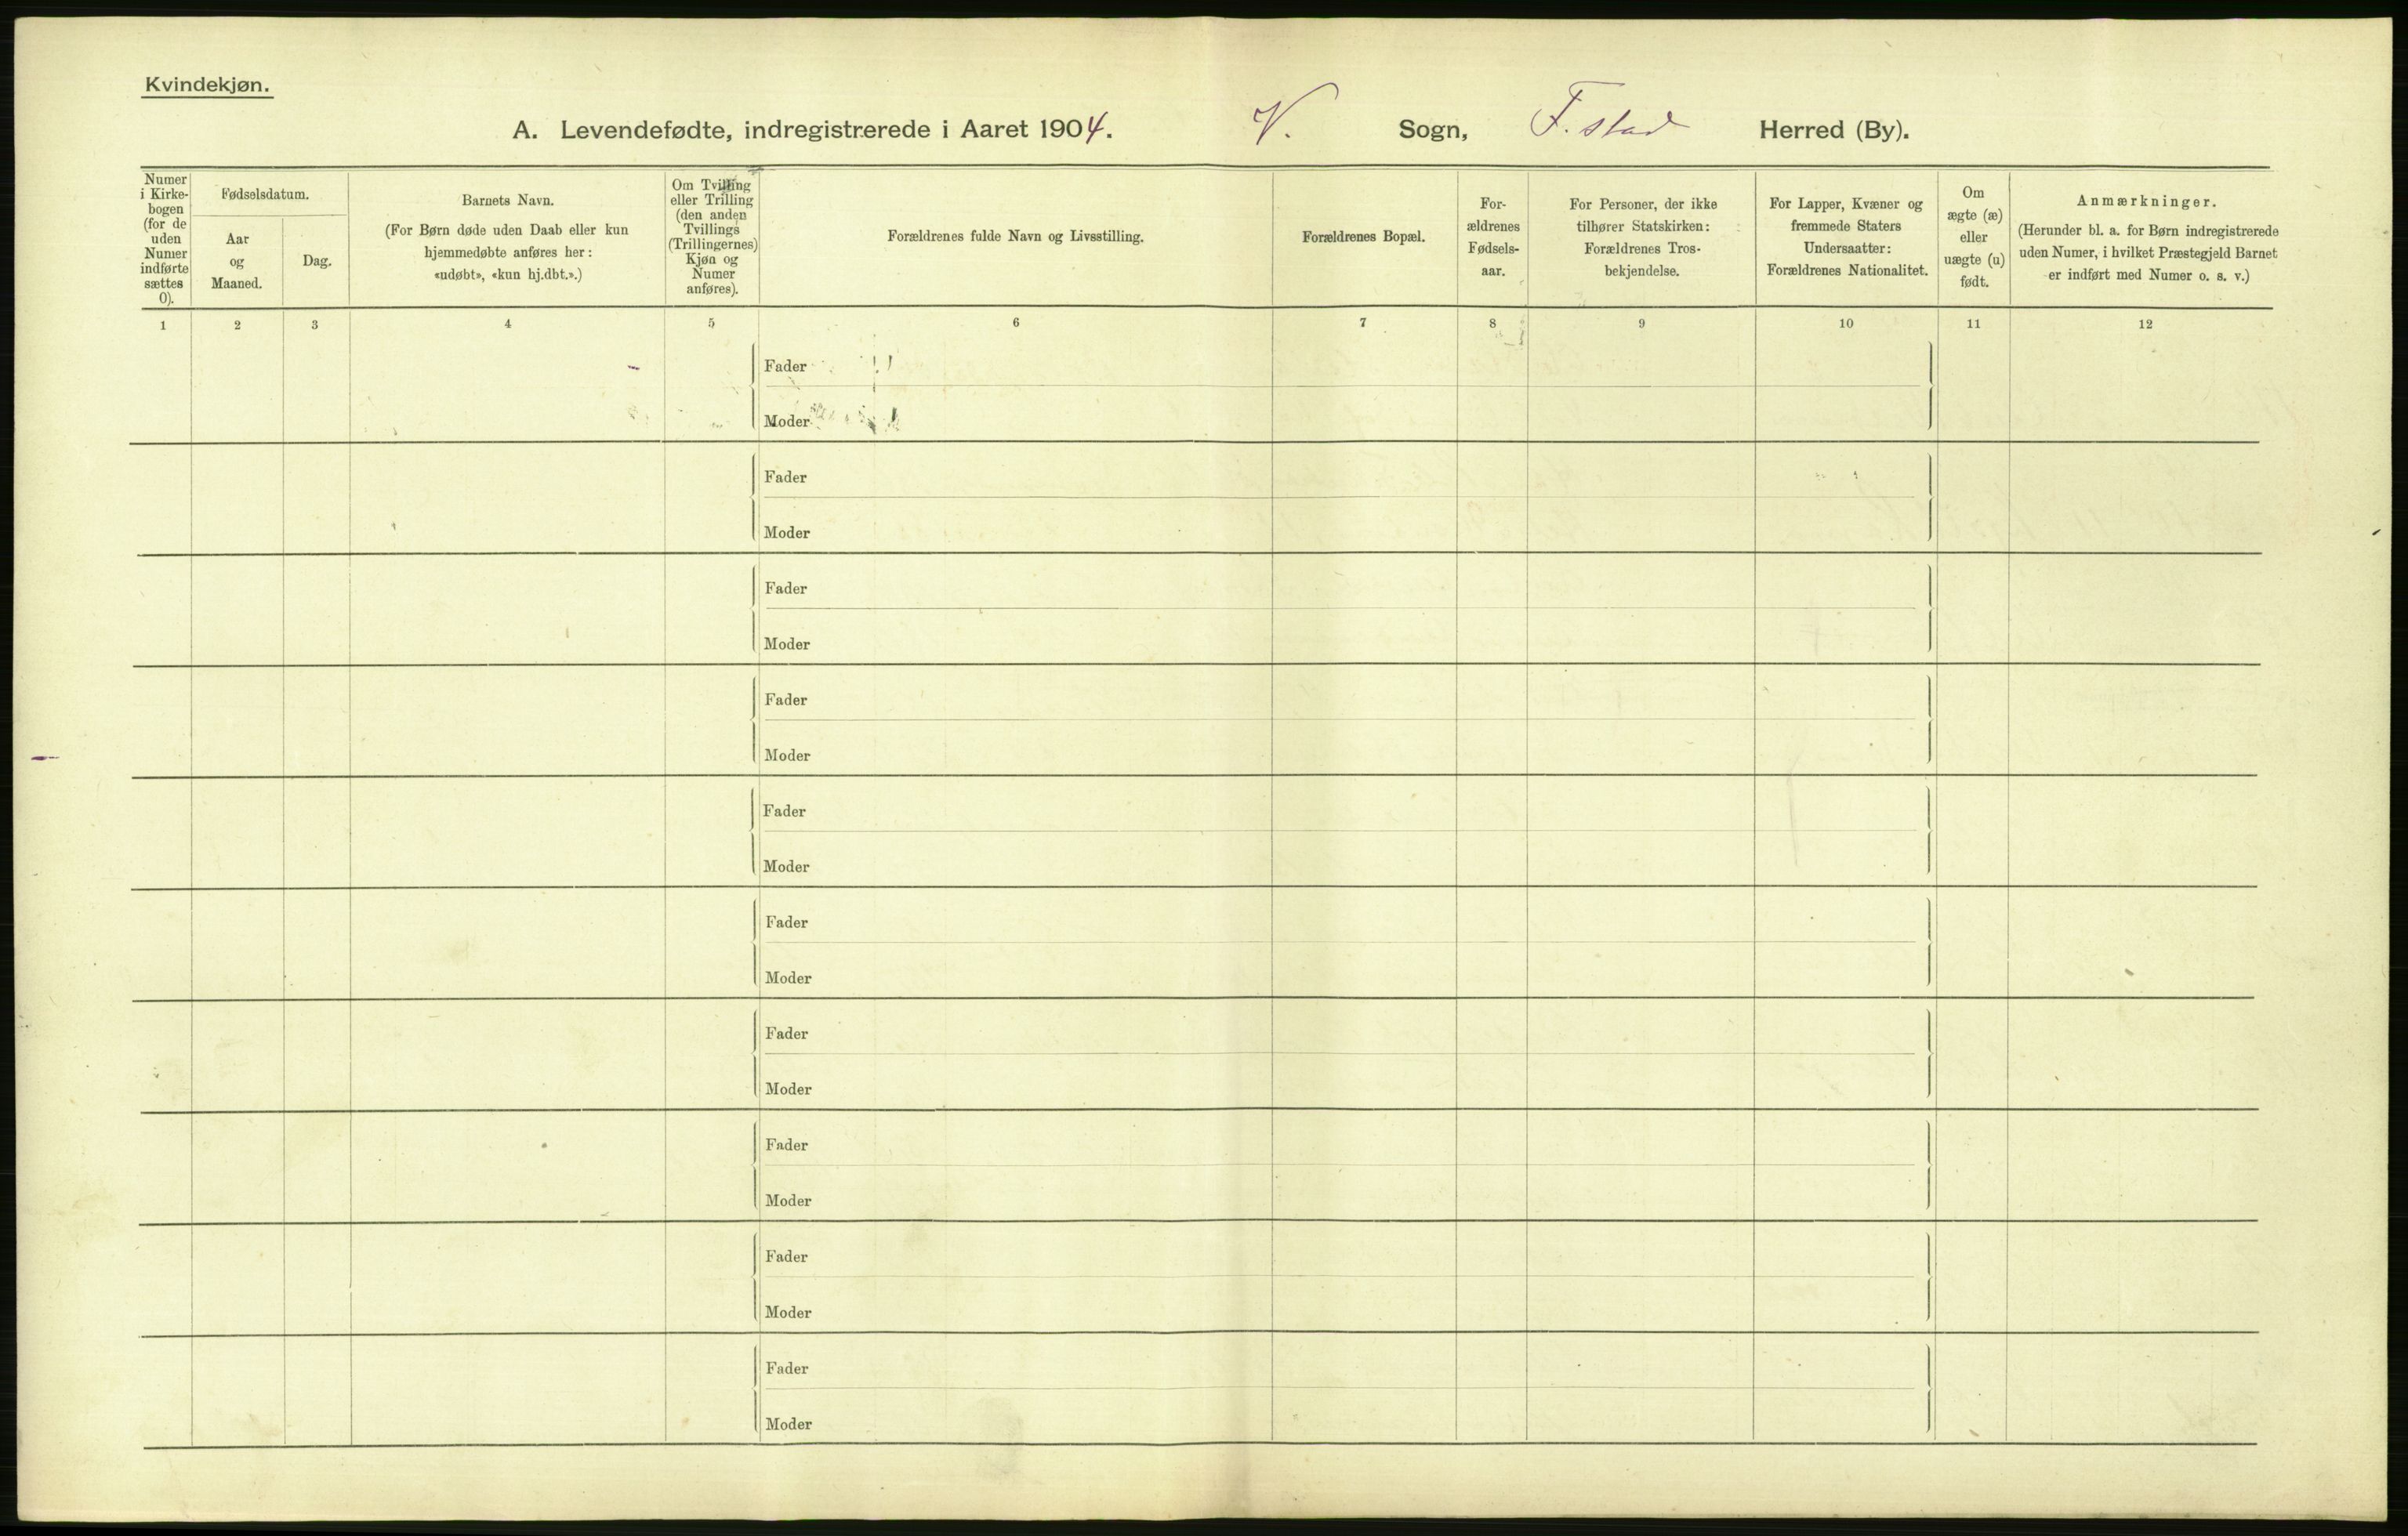 Kvindekjøn.
A. Levendefødte, indregistrerede i Aaret 1904. V. Sogn, F.stad Herred (By).
Numer
i Kirke-
bogen
(for de
uden
Numer
indførte
sættes
0).
Fødselsdatum.
Aar
og
Maaned.
Dag.
Barnets Navn.
(For Børn døde uden Daab eller kun
hjemmedøbte anføres her:
«udøbt», «kun hj.dbt.».)
Om Tvilling
eller Trilling
(den anden
Tvillings
(Trillingernes)
Kjøn og
Numer
anføres).
Forældrenes fulde Navn og Livsstilling.
Forældrenes Bopæl.
For-
ældrenes
Fødsels-
aar.
For Personer, der ikke
tilhører Statskirken:
Forældrenes Tros-
bekjendelse.
For Lapper, Kvæner og
fremmede Staters
Undersaatter:
Forældrenes Nationalitet.
Om
ægte (æ)
eller
uægte (u)
født.
Anmærkninger.
(Herunder bl. a. for Børn indregistrerede
uden Numer, i hvilket Præstegjeld Barnet
er indført med Numer o. s. v.)
1 2 3 4 5 6 7 8 9 10 11 12
Fader
Moder
Fader
Moder
Fader
Moder
Fader
Moder
Fader
Moder
Fader
Moder
Fader
Moder
Fader
Moder
Fader
Moder
Fader
Moder